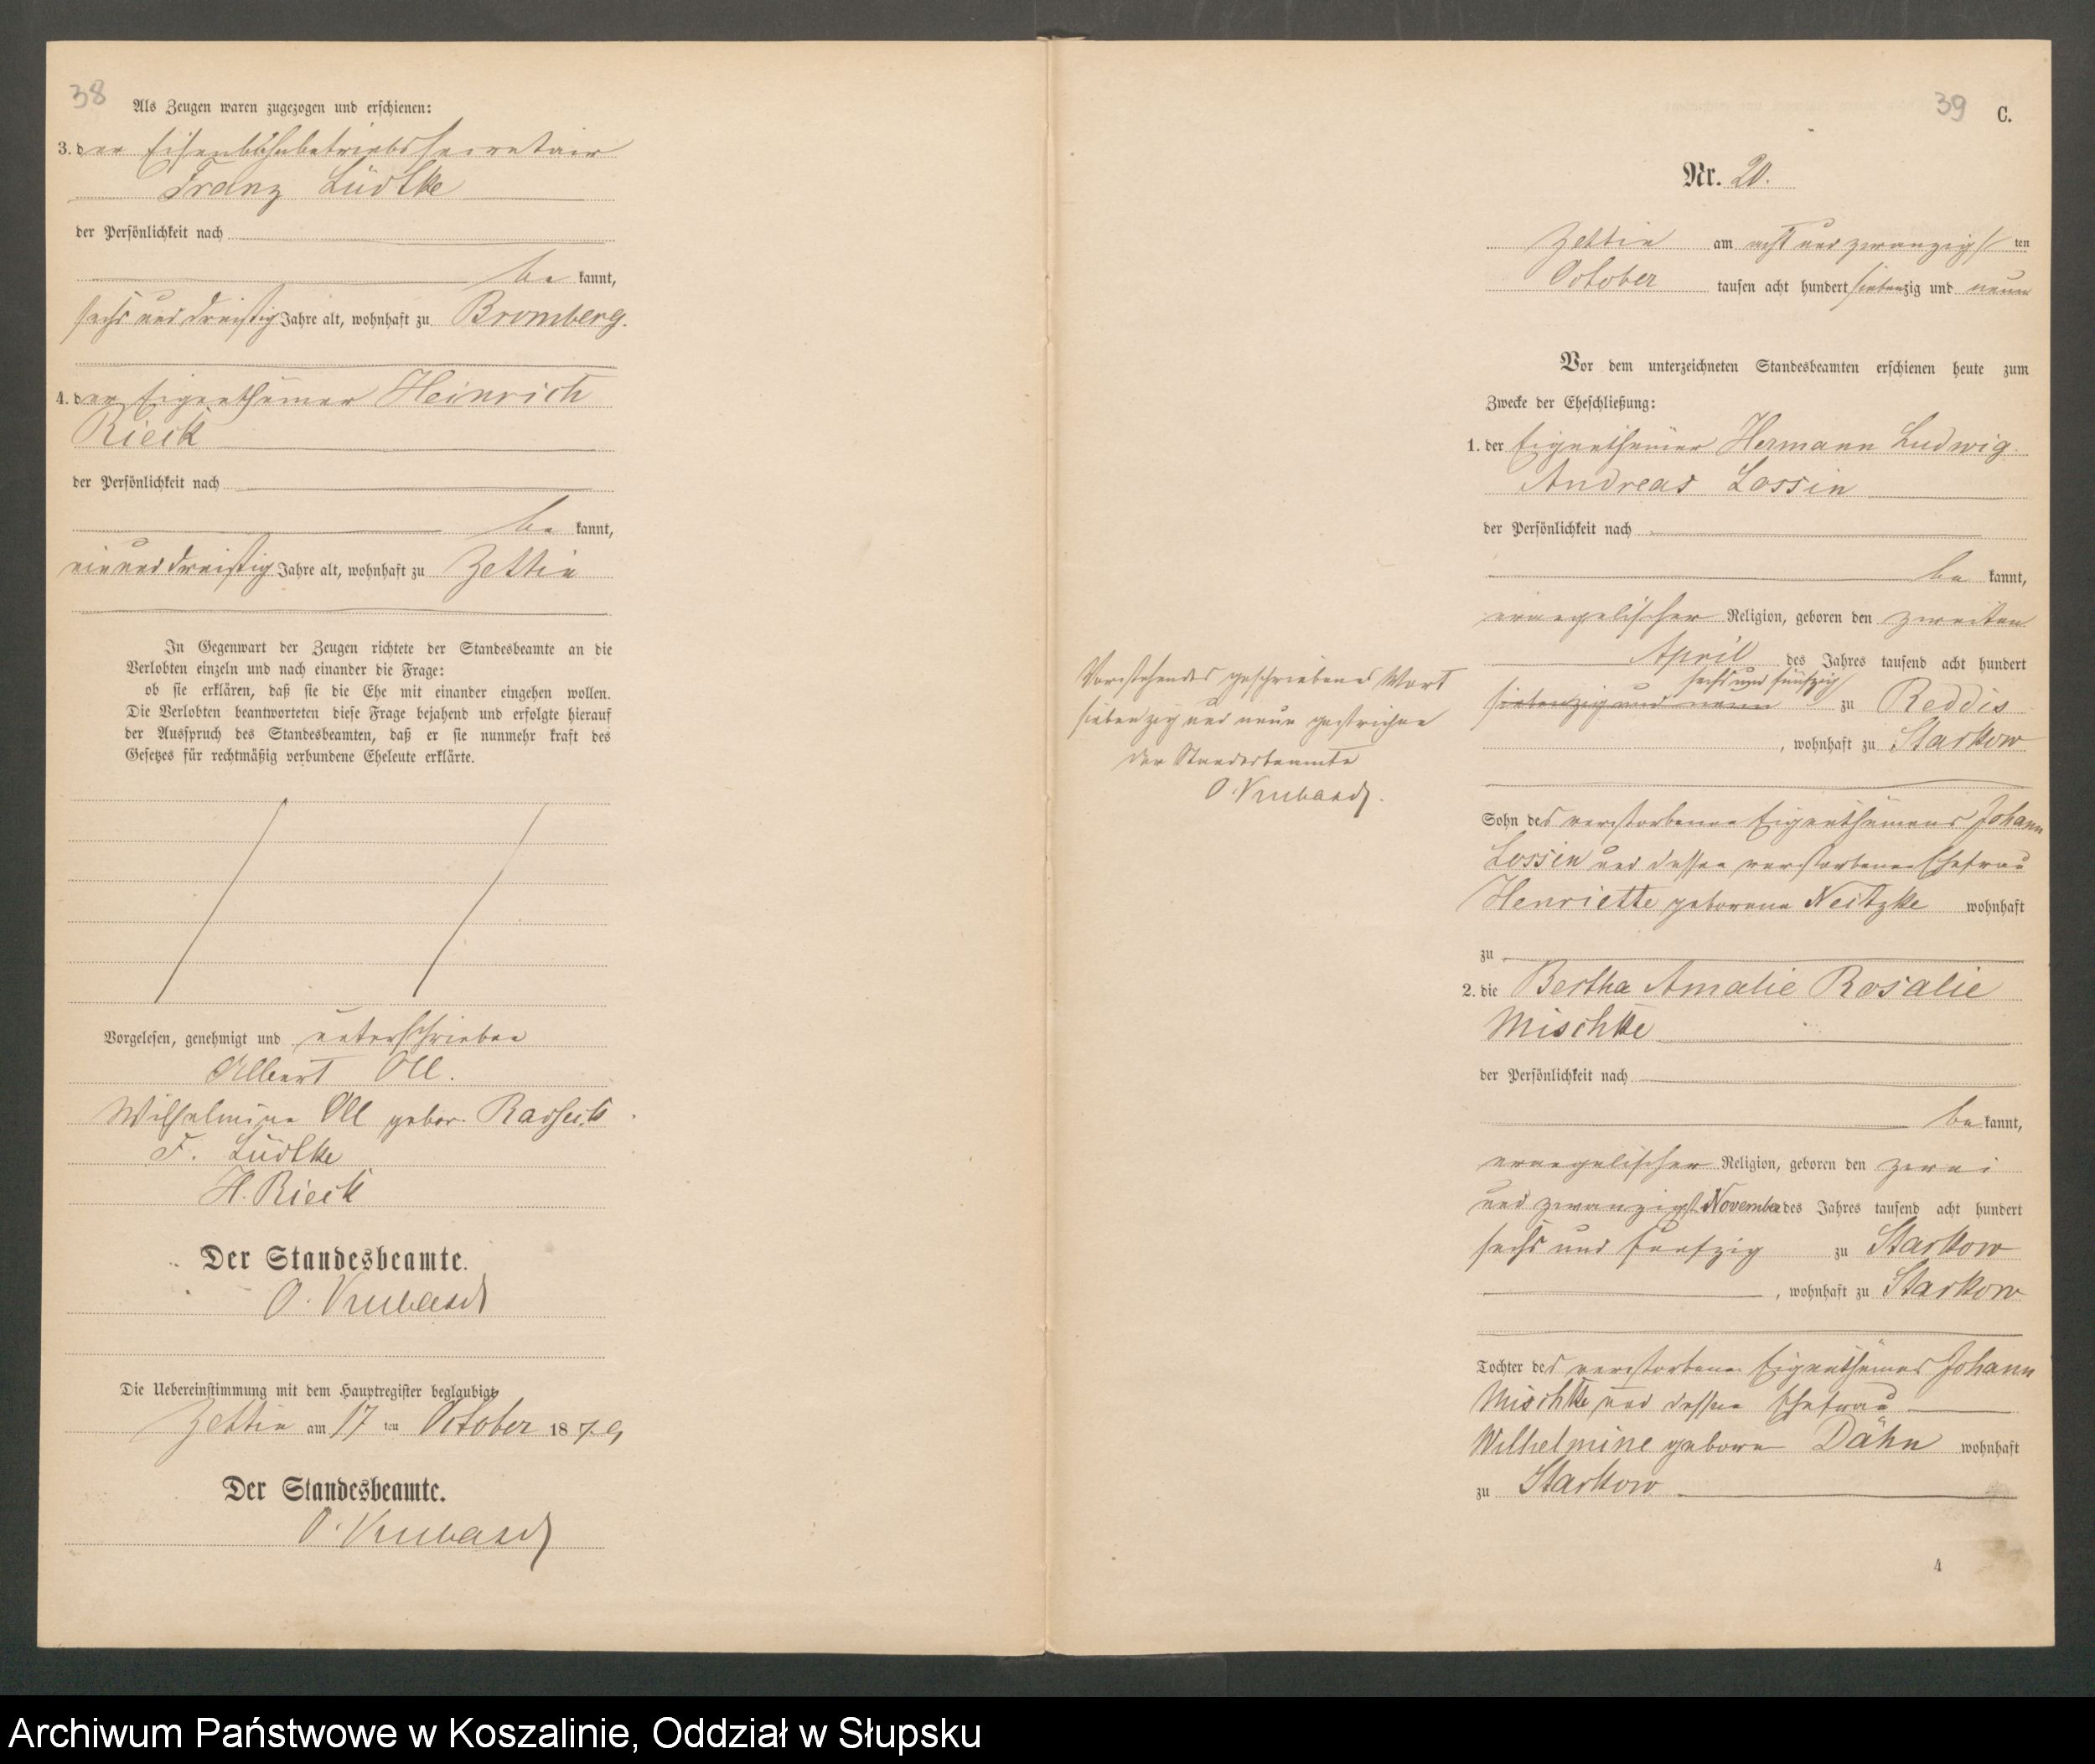 38
Als Zeugen waren zugezogen und erschienen:
3. der Eisenbahnbetriebssecretair
Franz Lüdtke
der Persönlichkeit nach
be kannt,
sechs und dreißig Jahre alt, wohnhaft zu Bromberg.
4. der Eigenthümer Heinrich
Rieck
der Persönlichkeit nach
be kannt,
ein und dreißig Jahre alt, wohnhaft zu Zettin
In Gegenwart der Zeugen richtete der Standesbeamte an die
Verlobten einzeln und nach einander die Frage:
ob sie erklären, daß sie die Ehe mit einander eingehen wollen.
Die Verlobten beantworteten diese Frage bejahend und erfolgte hierauf
der Ausspruch des Standesbeamten, daß er sie nunmehr kraft des
Gesetzes für rechtmäßig verbundene Eheleute erklärte.
Vorgelesen, genehmigt und unterschrieben
Albert Oll.
Wilhelmine Oll gebor.
F. Lüdtke
H. Rieck
Der Standesbeamte.
O.
Die Uebereinstimmung mit dem Hauptregister beglaubigt
Zettin am 17 ten October 1879
Der Standesbeamte.
O.
39 C.
Nr. 20.
Zettin am acht und zwanzigs ten
October tausen acht hundert siebenzig und neun
Vor dem unterzeichneten Standesbeamten erschienen heute zum
Zwecke der Eheschließung:
1. der Eigenthümer Hermann Ludwig
Andreas Lossin
der Persönlichkeit nach
be kannt,
evangelischer Religion, geboren den zweiten
April des Jahres tausend acht hundert
sechs und fünfzig
siebenzig und neun zu Reddis
, wohnhaft zu Starkow
Vorstehendes geschriebenes Wort
siebenzig und neun gestrichen
Der Standesbeamte
O.
Sohn des verstorbenen Eigenthümers Johann
Lossin und dessen verstorbenen Ehefrau
Henriette geborene Neitzke wohnhaft
zu
2. die Bertha Amalie Rosalie
Mischke
der Persönlichkeit nach
be kannt,
evangelischer Religion, geboren den zwei
und zwanzigst November des Jahres tausend acht hundert
sechs und funfzig zu Starkow
, wohnhaft zu Starkow
Tochter des verstorbenen Eigenthümers Johann
Mischke und dessen Ehefrau
Wilhelmine geborne Dähn wohnhaft
zu Starkow
4
Archiwum Państwowe w Koszalinie, Oddział w Słupsku